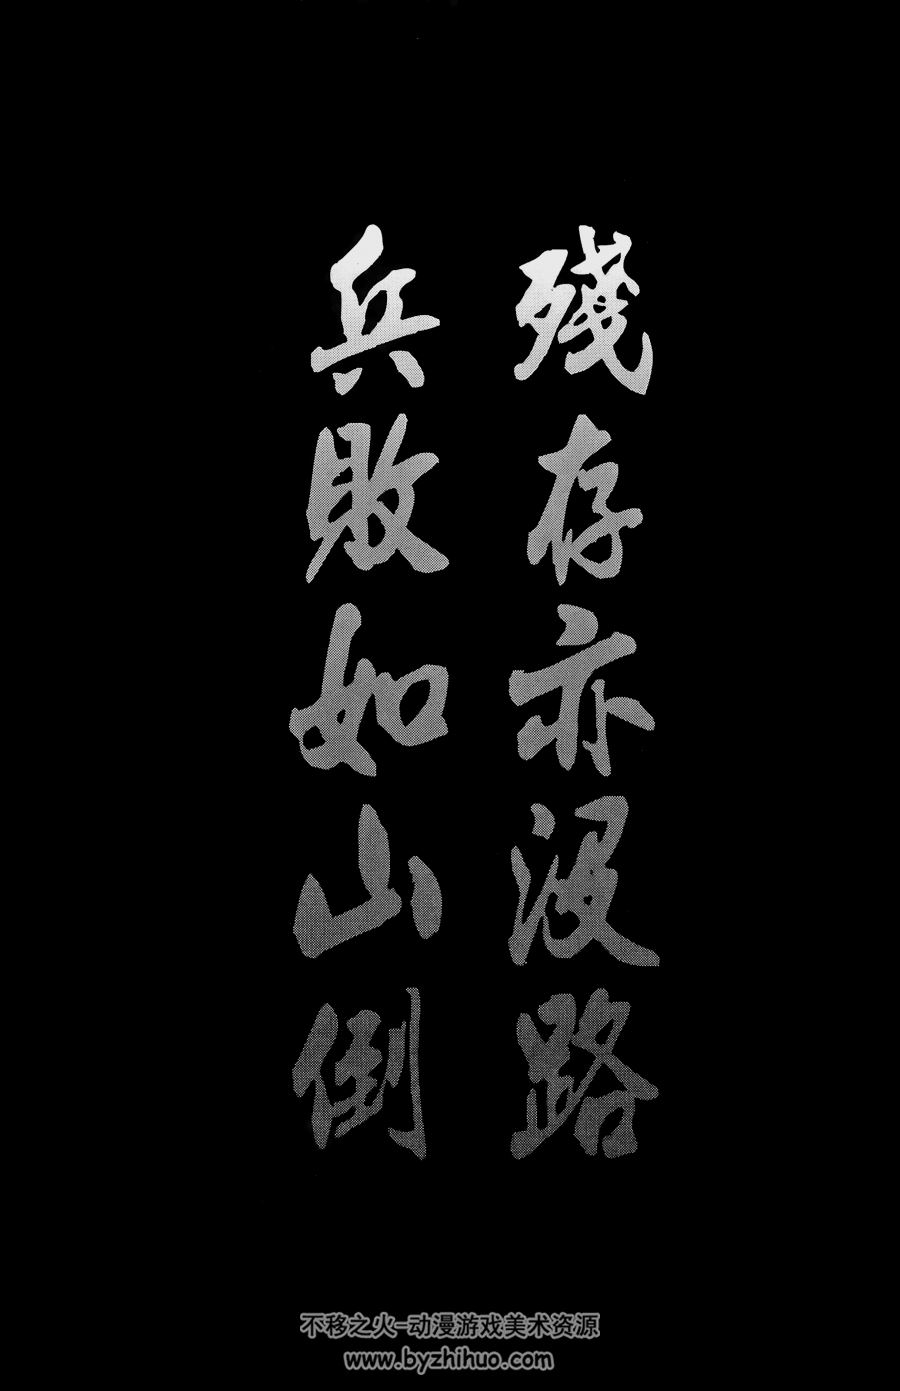 殘存亦沒路
兵敗如山倒
不移之火-动漫游戏美术资源
www.byzhihuo.com